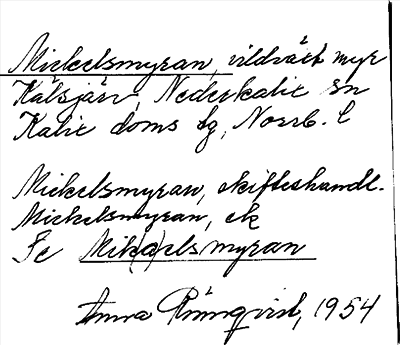 Mickelsmyran, vildväxt myr
Kälsjärv, Nederkalix sn
Kalix doms lg, Norrb. l
Mickelsmyran, skifteshandl.
Mickelsmyran, ek
Fe Mik(a)elsmyran
Anna Rönnqvist, 1954